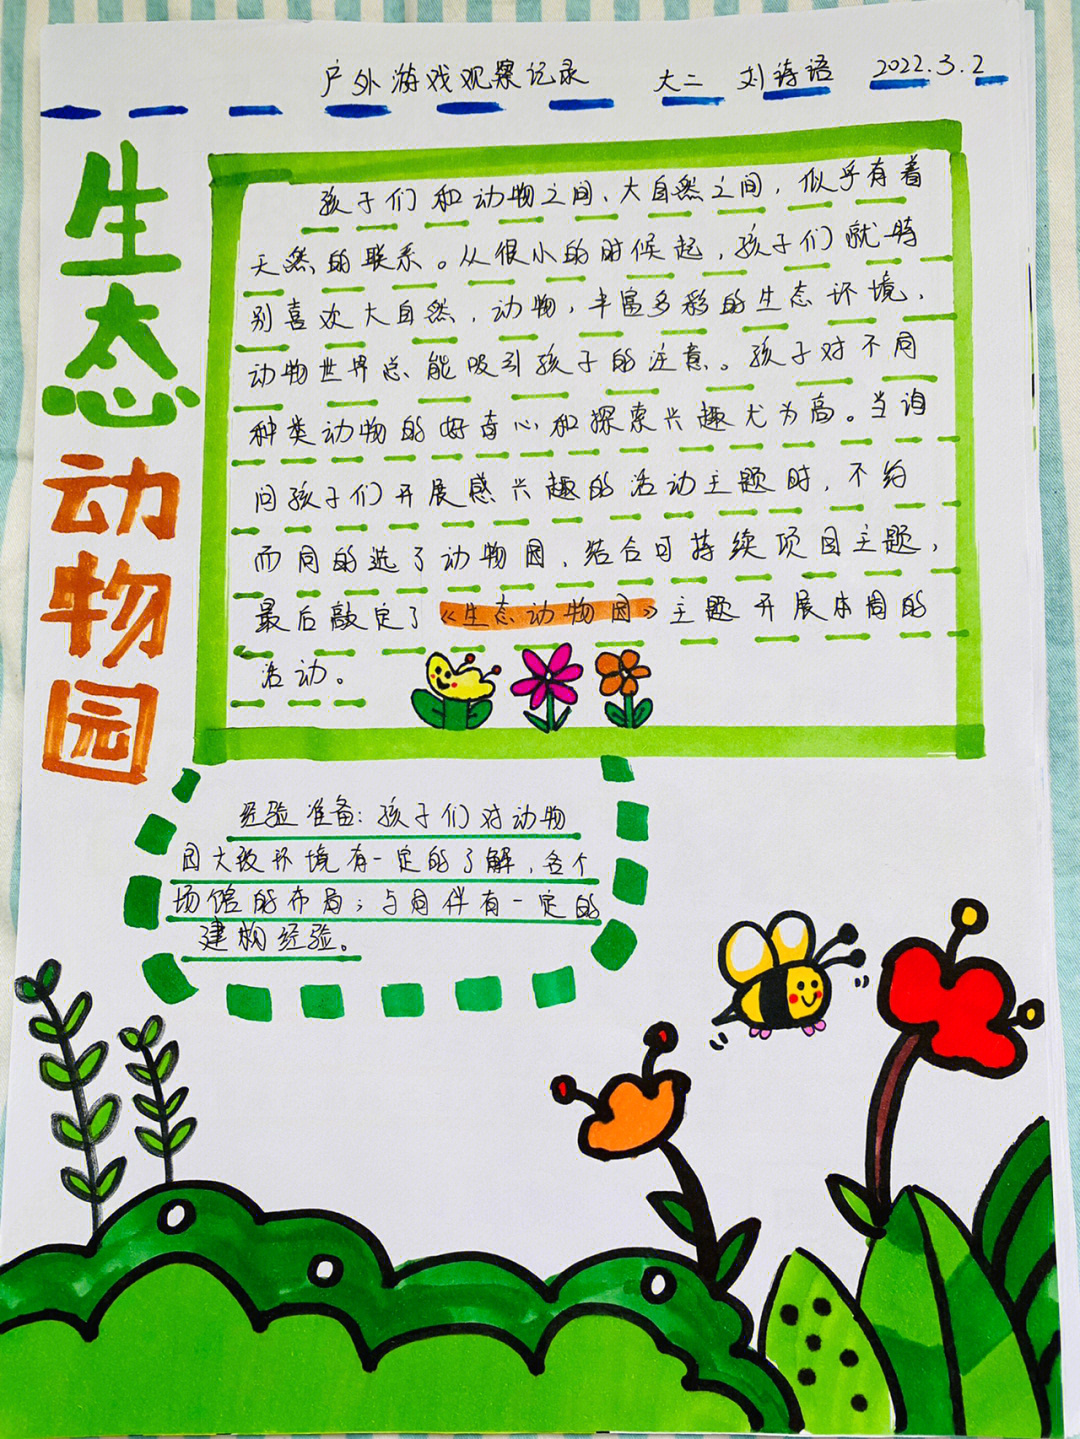 户外游戏观察记录 大二 刘诗语 2022.3.2
生态动物园
孩子们和动物之间、大自然之间，似乎有着
天然的联系。从很小的时候起，孩子们就特
别喜欢大自然，动物，丰富多彩的生态环境，
动物世界总能吸引孩子的注意。孩子对不同
种类动物的好奇心和探索兴趣尤为高。当询
问孩子们开展感兴趣的活动主题时，不约
而同的选了动物园，结合可持续项目主题，
最后敲定了《生态动物园》主题开展本周的
活动。
经验准备：孩子们对动物
园大致环境有一定的了解，各个
场馆的布局；与同伴有一定的
建构经验。